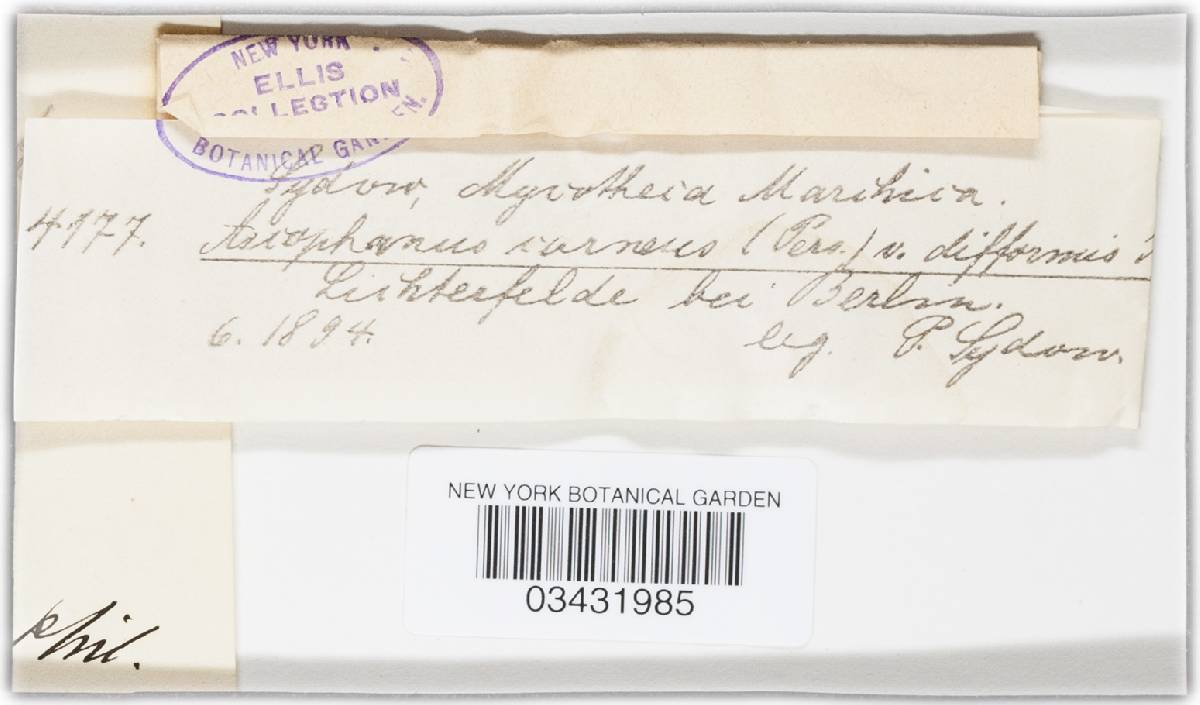 NEW YORK
ELLIS
COLLECTION
BOTANICAL GARDEN.
Sydow, Mycotheca Marchica.
4177. Ascophanus carneus (Pers.) v. difformis
Lichterfelde bei Berlin.
6. 1894. leg. P. Sydow.
NEW YORK BOTANICAL GARDEN
03431985
phil.